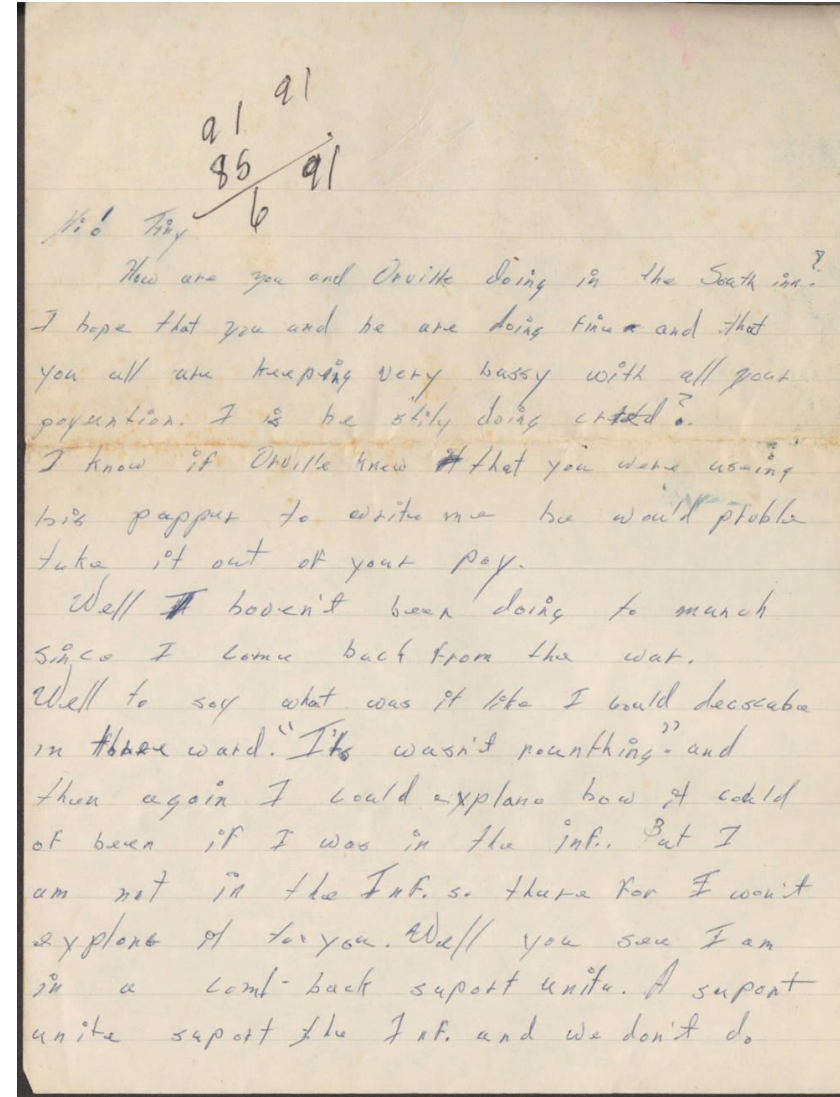 91
91
85 91
6
Hi! Tiny
How are you and Orville doing in the South inn?
I hope that you and he are doing fine and that
you all are keeping very bussy with all your
I is he stily doing
I know if Orville knew that you were useing
his pappur to write me he would pruble
take it out of your pay.
Well I haven't been doing to munch
since I come back from the war.
Well to say what was it like I could decscabe
in three ward. "It's wasn't nounthing". and
then again I could explane how it could
of been if I was in the inf.. But I
am not in the Inf. so there for I won't
explane it to you. Well you see I am
in a comt-back suport unite. A suport
unite suport the Inf. and we don't do